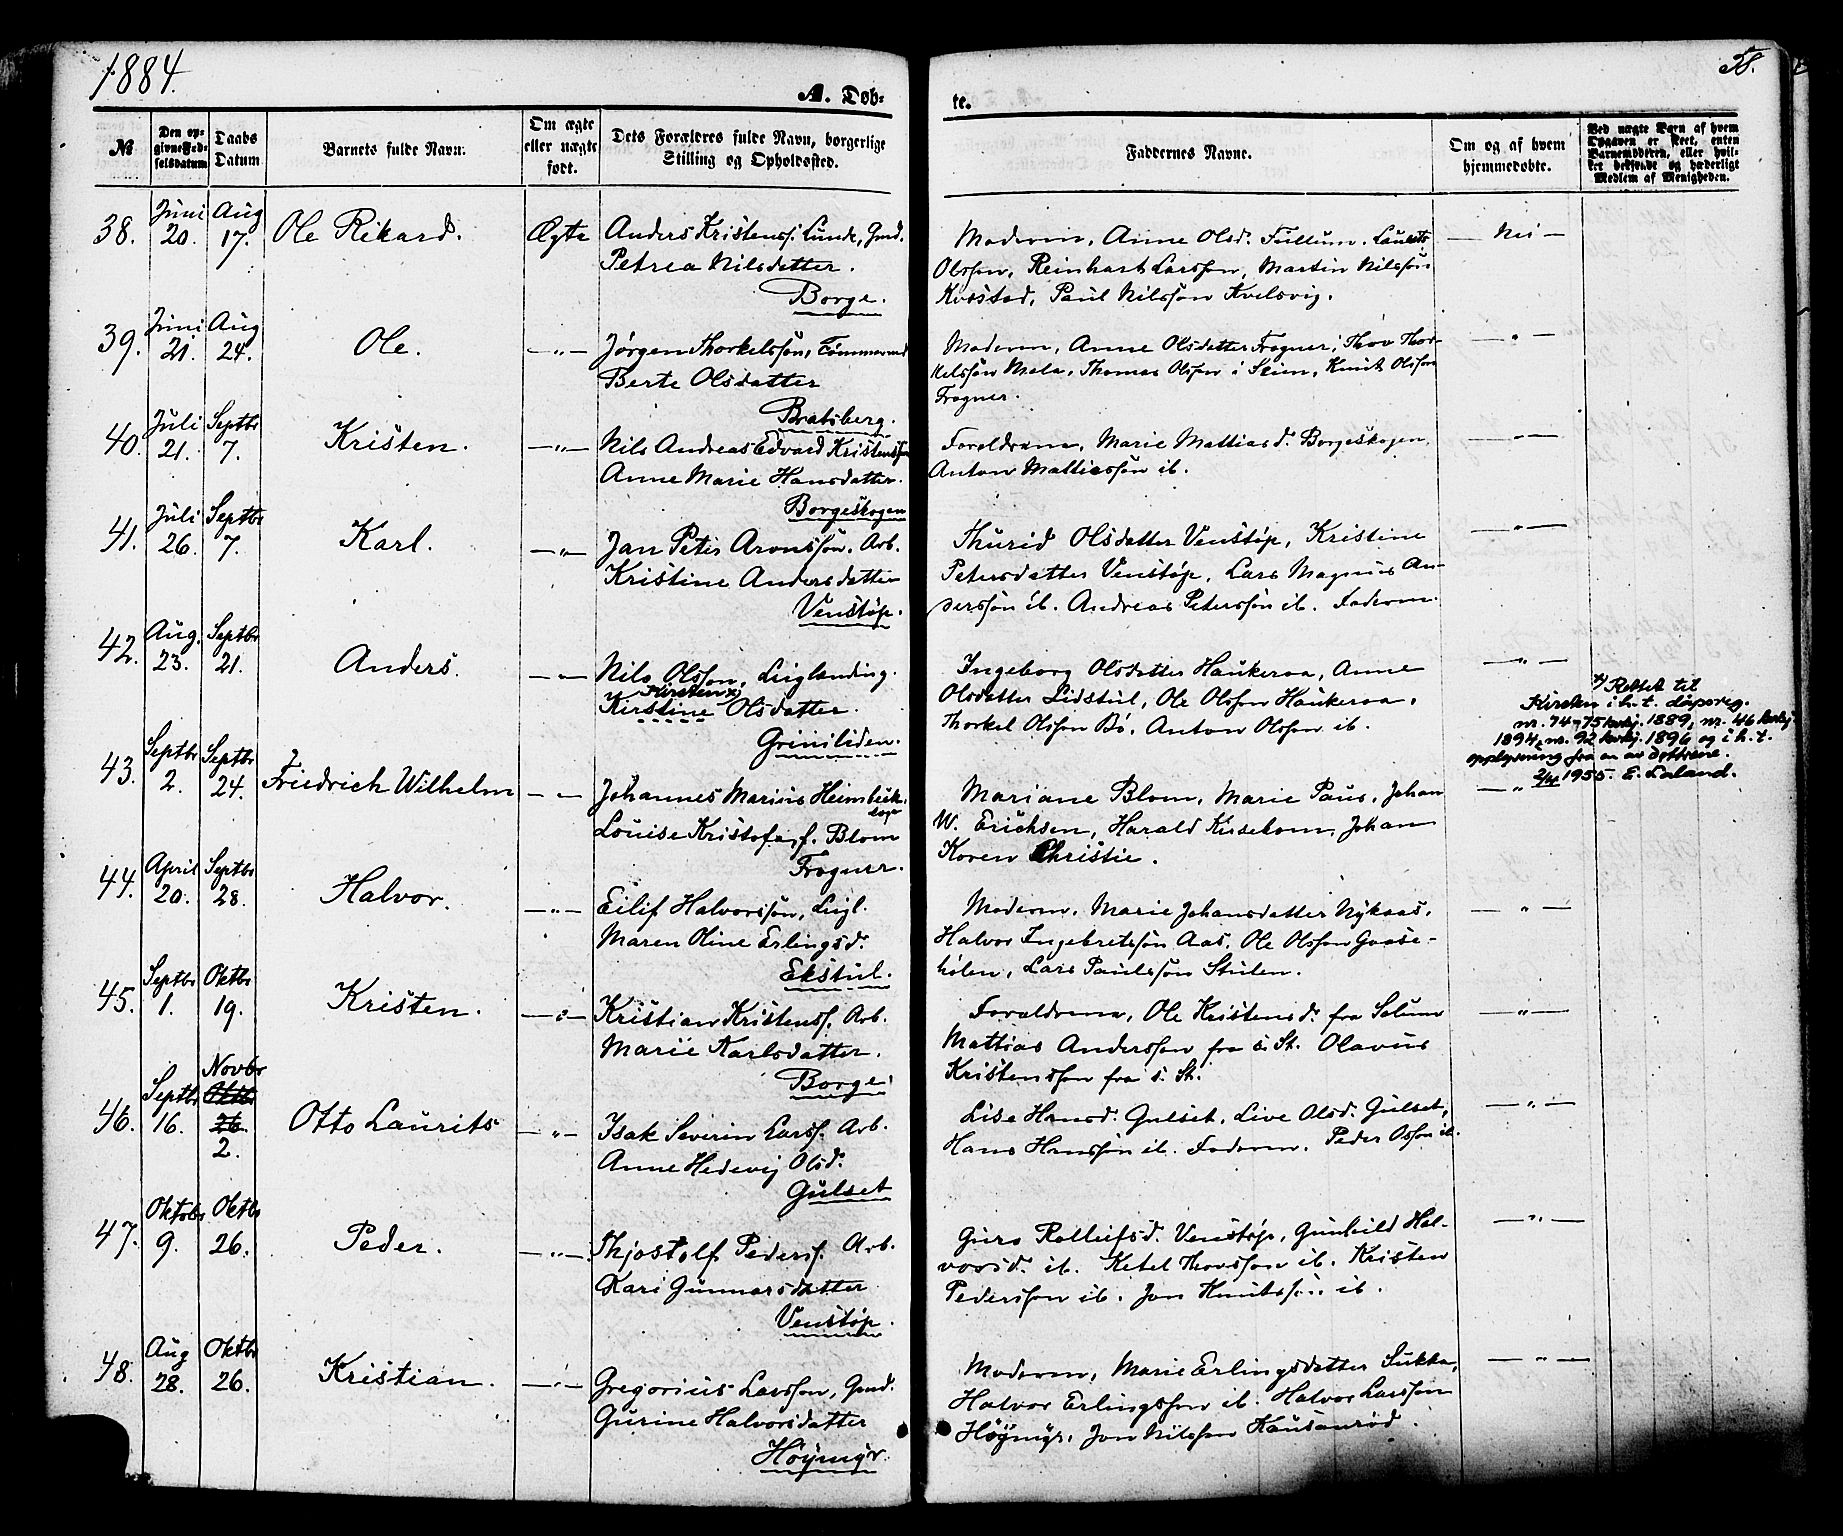 1884.
58.
A. Døb-
te.
№
Den op-
givne Fød-
selsdatum
Daabs
Datum.
Barnets fulde Navn.
Om ægte
eller uægte
født.
Dets Forældres fulde Navn, borgerlige
Stilling og Opholdssted.
Faddernes Navne.
Om og af hvem
hjemmedøbte.
Ved uægte Barn af hvem
Opgaven er skeet, enten
Barnemoderen, eller hvil-
ket bekjendt og hæderligt
Medlem af Menigheden.
38.
Juni
20.
Aug
17.
Ole Rikard.
Ægte
Anders Kristenss. Lunde, Gmd.
Petrea Nilsdatter.
Borge.
Moderen, Anne Olsd. Fullum. Laurits
Olsson, Reinhart Larsson, Martin Nilssön
Paul Nilssön Kvelsvig.
— Nei —
39.
Juni
21.
Aug
24.
Ole.
— " —
Jørgen Thorkelssön, Tömmermd
Berte Olsdatter
Bratsberg.
Moderen, Anne Olsdatter Frogner, Thov Thor-
kelssön Mæla, Thomas Olsson i Skien, Knut Olsson
Frogner.
— " —
40.
Juli
21.
Septbr
7.
Kristen.
— " —
Nils Andreas Edvard Kristenssön
Anne Marie Hansdatter.
Borgeskogen
Foreldrene, Marie Mattiasd. Borgeskogen,
Anton Mattiassön ib.
— " —
41.
Juli
26.
Septbr
7.
Karl.
— " —
Jan Peter Aronssön. Arb.
Kristine Andersdatter
Venstöp.
Thurid Olsdatter Venstöp, Kristine
Petersdatter Venstöp, Lars Magnus An-
derssön ib. Andreas Peterssön ib. Faderen.
— " —
42.
Aug.
23.
Septbr
21.
Anders.
— " —
Nils Olsson, Leiglending.
Kirsten x)
Kirstine Olsdatter.
Griniliden.
Ingeborg Olsdatter Haukeraa, Anne
Olsdatter Lidstul, Ole Olsson Haukeraa,
Thorkel Olsson Bö, Anton Olsson ib.
— " —
x) Rettet til
Kirsten i h.t. dåpsreg.
nr. 74 og 75 kvkj. 1889, nr. 46 kvkj.
1894, nr. 92 kvkj. 1896 og i h.t.
opplysning fra en av døttrene.
2/4 1955. E. Laland.
43.
Septbr
2.
Septbr
24.
Friedrich Wilhelm
— " —
Johannes Marius Heimbeck,
Louise Kristofa f. Blom
Frogner.
Mariane Blom, Marie Paus, Johan
W. Erichsen, Harald Johan
Koren Christie.
— " —
44.
April
20.
Septbr
28.
Halvor.
— " —
Eilif Halvorssön, Leigl.
Maren Oline Erlingsd.
Ekstul.
Moderen, Marie Johansdatter Nykaas,
Halvor Ingebretssön Aas, Ole Olsson Gaase-
holen, Lars Paulssön Stulen.
— " —
45.
Septbr
1.
Oktbr
19.
Kristen.
— " —
Kristian Kristenss. Arb.
Marie Karlsdatter.
Borge
Foreldrene, Ole Kristensd. fra Solum
Mattias Anderssön fra s. St. Olavus
Kristensson fra s. St.
— " —
46.
Septbr
16.
Novbr
Oktbr
26.
2.
Otto Laurits
— " —
Isak Severin Larss. Arb.
Anne Hedevig Olsd.
Gulset
Lise Hansd. Gulset, Live Olsd. Gulset,
Hans Hanssön ib. Faderen. Peder Olsson ib.
— " —
47.
Oktobr
9.
Oktbr
26.
Peder.
— " —
Thjostolf Pederss. Arb.
Kari Gunnarsdatter
Venstöp.
Guro Rolleifsd. Venstöp, Gunhild Hal-
vorsd. ib. Ketel Thovsson ib. Kristen
Pedersson ib. Jon Knutssön ib.
— " —
48.
Aug
28.
Oktbr
26.
Kristian.
— " —
Gregorius Larsson, Gmd.
Gurine Halvorsdatter
Höymyr.
Moderen, Marie Erlingsdatter Sukka,
Halvor Erlingsson ib. Halvor Larsson
Höymyr, Jon Nilsson Hausanröd.
— " —